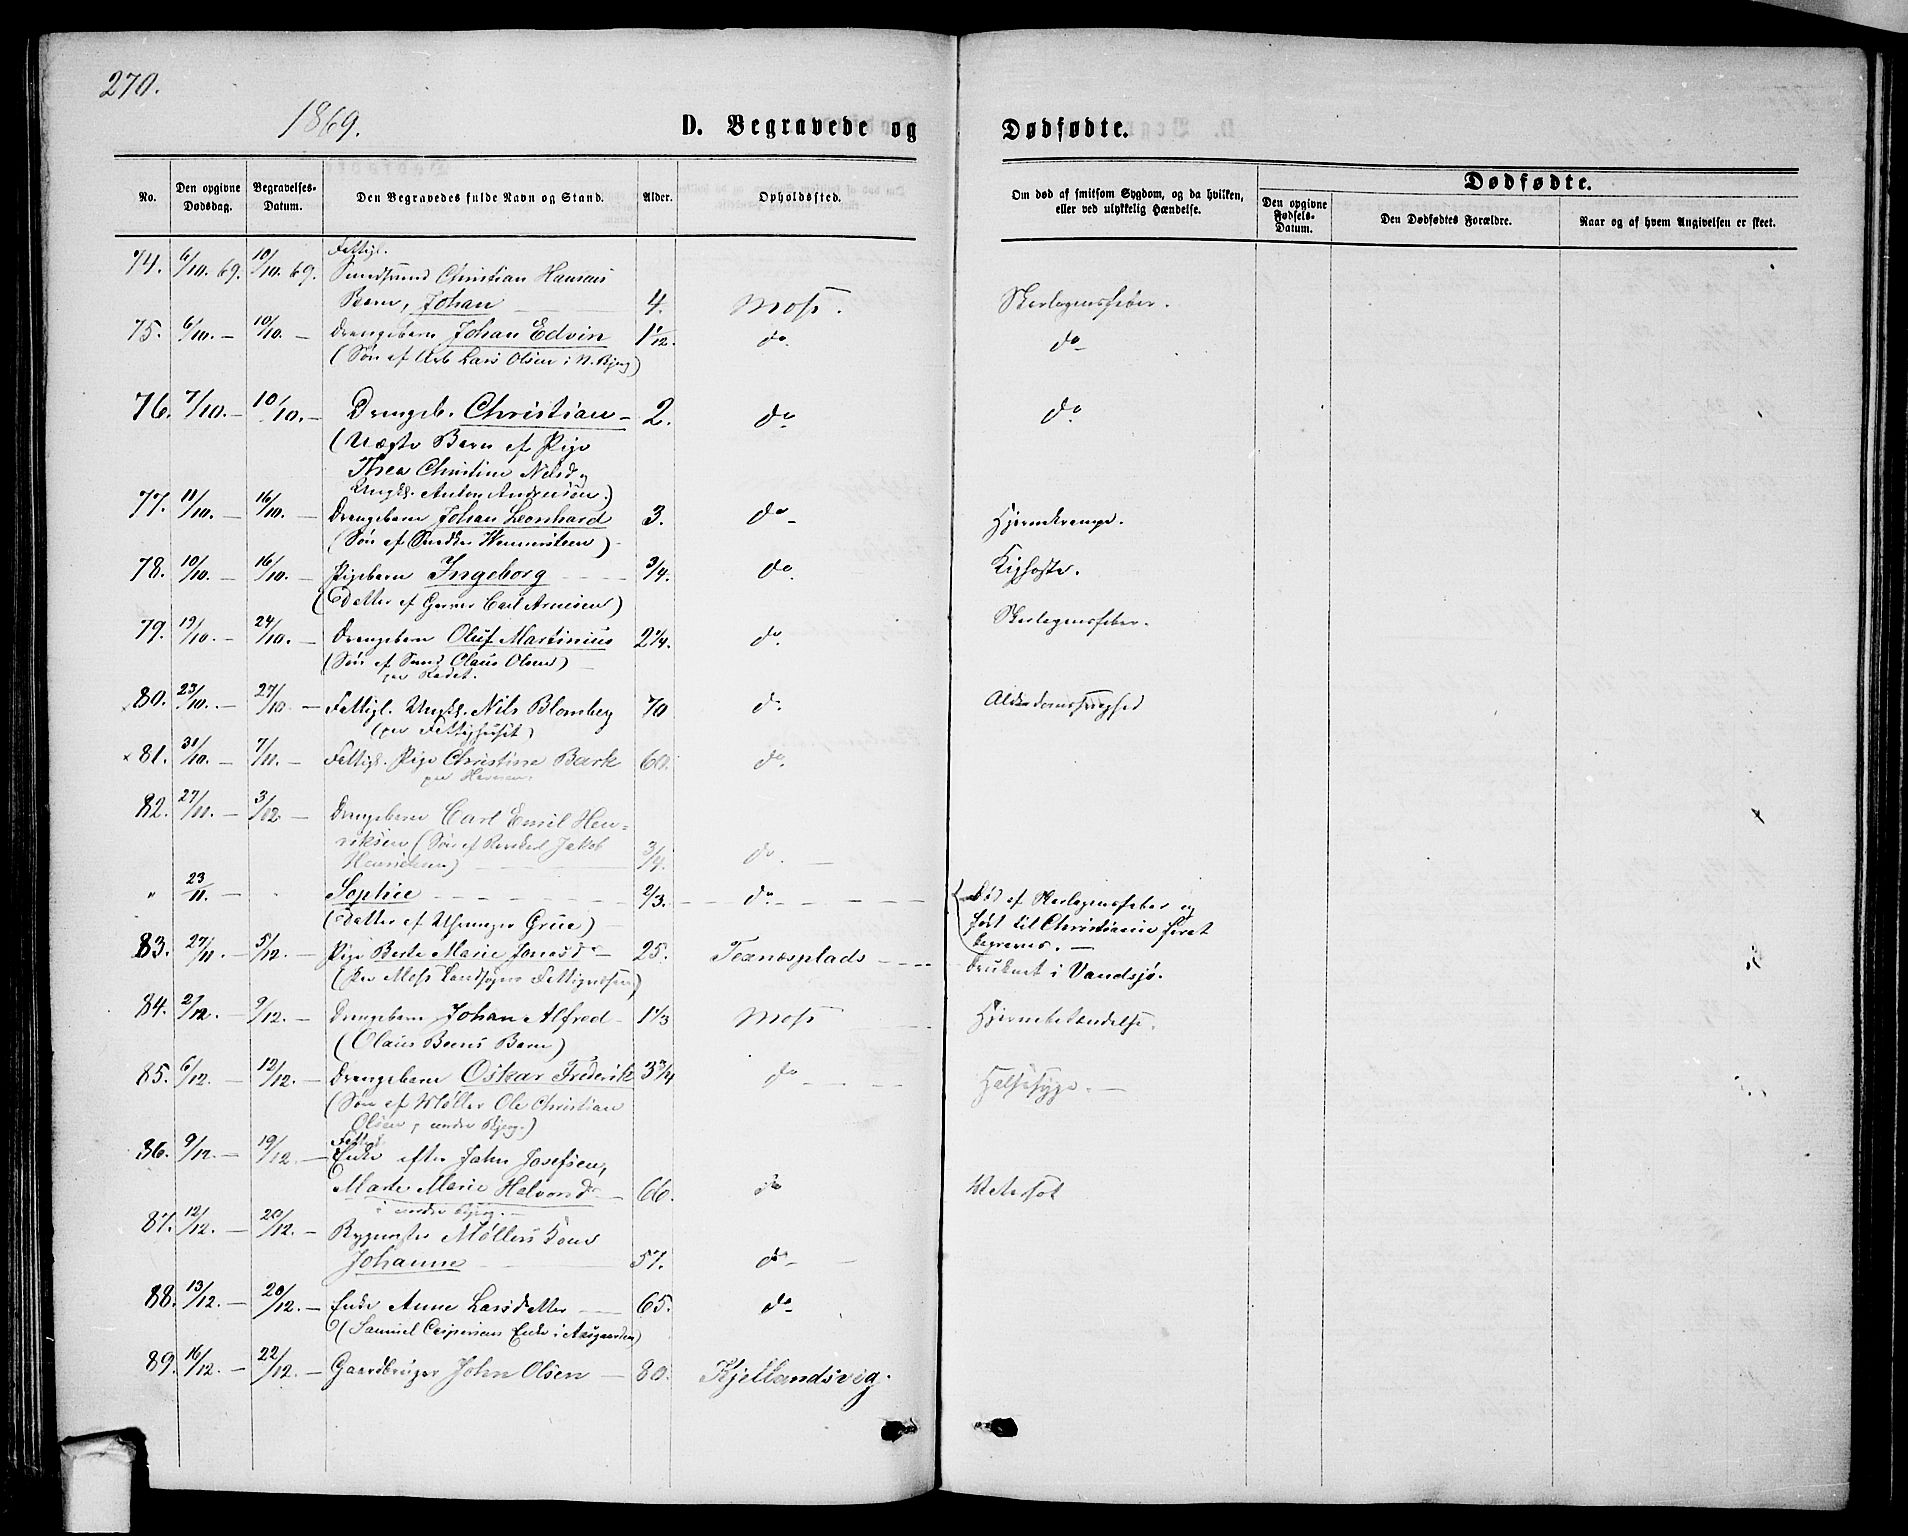 270.
1869.
D. Begravede og Dødfødte.
No.
Den opgivne Dødsdag.
Begravelses-Datum.
Den Begravedes fulde Navn og Stand.
Alder.
Opholdssted.
Om død af smitsom Sygdom, og da hvilken, eller ved ulykkelig Hændelse.
Dødfødte.
Den opgivne Fødsels-Datum.
Den Dødfødtes Forældre.
Naar og af hvem Angivelsen er skeet.
74. 6/10. 69. 10/10. 69. Fattigl.
Christian Hansens
Barn, Johan 4. Moss. Skarlagensfeber.
75. 6/10. — 10/10. — Drengebarn Johan Edvin 1 1/12. do do
(Søn af Arb Lars Olsen i N. Bjerg)
76. 7/10. — 10/10. — Drengeb. Christian — 2. do do
(Uægte Barn af Pige
Thea Christine Nilsd og
Ungk. Anton Andersen.)
77. 11/10. — 16/10. — Drengebarn Johan Leonhard 3. do Hjernekrampe.
(Søn af Snedker Wennersteen)
78. 10/10. — 16/10. — Pigebarn Ingeborg 3/4. do Kighoste.
(Datter af Garver Carl Arnesen)
79. 19/10. — 24/10. — Drengebarn Oluf Martinius 2 1/4. do. Skarlagensfeber.
(Søn af Claus Olsen)
80. 23/10. — 27/10. — Fattigl. Ungk. Nils Blomberg 70 do. Alderdomssvaghed
(paa Fattighuset)
× 81. 31/10. — 7/11. — Fattigl. Pige Christine Bark 60. do.
82. 27/11. — 3/12. — Drengebarn Carl Emil Hen-
riksen (Søn af Jakob
Henriksen) 3/4. do. —
" 23/11. — Sophie 2/3. do. Død af Skarlagensfeber og
(Datter af Grue) ført til Christiania for at
begraves. —
83. 27/11. — 5/12. — Pige Berte Marie Jonasdr 25. Texnæsplads Druknet i Vandsjø.
(paa Moss Landsogns Fattigvæsen)
84. 2/12. — 9/12. — Drengebarn Johan Alfred 1 1/3 Moss Hjernebetændelse.
(Olaus Beens Barn)
85. 6/12. — 12/12. — Drengebarn Oskar Frederik 3 3/4 do Halssyge. —
(Søn af Møller Ole Christian
Olsen, under Bjerg.)
86. 9/12. — 19/12. — Fattigl.
Enke efter John Josefsen,
Marte Marie Halvorsdr — 66. do Vatersot
i under Bjerg. —
87. 12/12. — 20/12. — Bygmester Møllers Kone
Johanne 57. do —
88. 13/12. — 20/12. — Enke Anne Larsdatter 65. do
(Samuel Caspersens Enke i Aasgaarden)
89. 16/12. — 22/12. — Gaardbruger John Olsen — 80. Kjellandsvig.